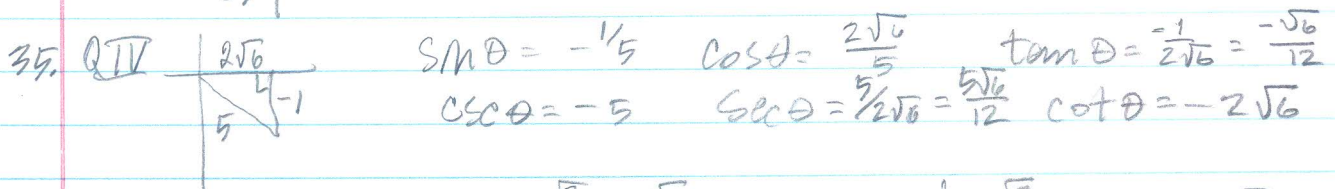 35. QIV 2√6 sin θ = -1/5 cos θ = 2√6/5 tan θ = -1/2√6 = -√6/12
5 -1 csc θ = -5 sec θ = 5/2√6 = 5√6/12 cot θ = -2√6